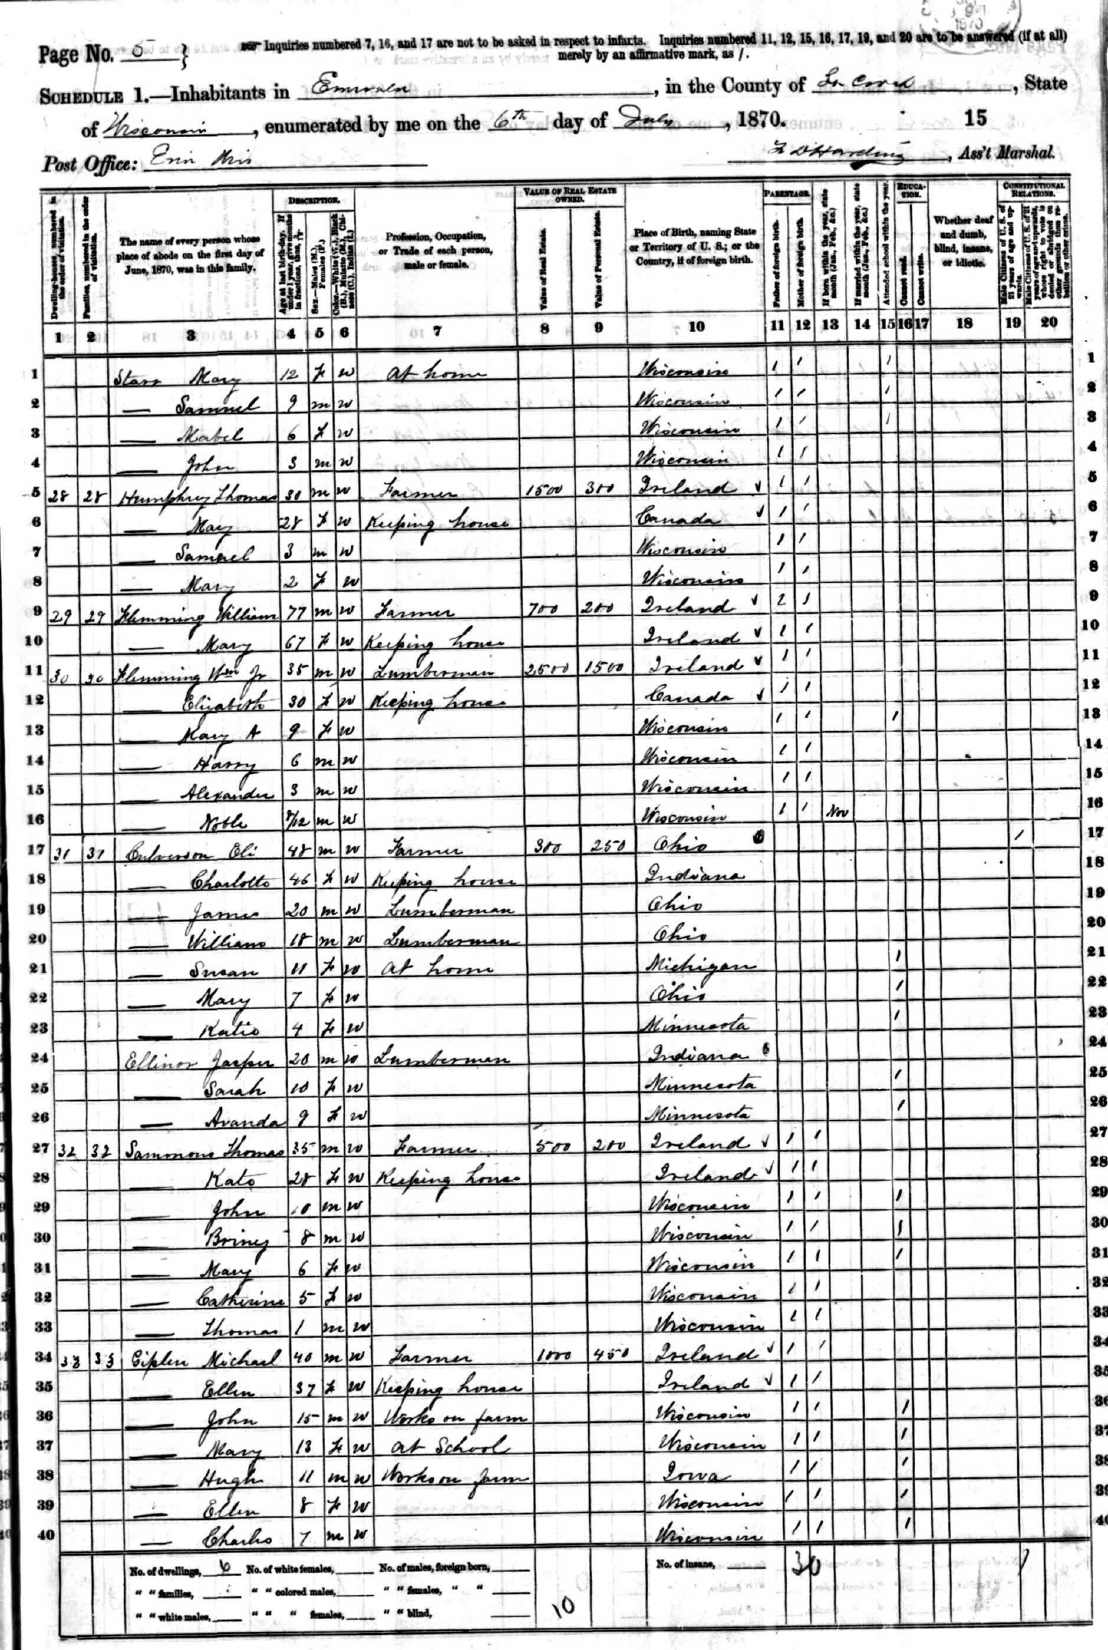 Page No. 5 }
Inquiries numbered 7, 16, and 17 are not to be asked in respect to infants. Inquiries numbered 11, 12, 15, 16, 17, 19, and 20 are to be answered (if at all)
merely by an affirmative mark, as /.
SCHEDULE 1.—Inhabitants in Emerald, in the County of St Croix, State
of Wisconsin, enumerated by me on the 6th day of July, 1870. 15
Post Office: Erin Wis Harding, Ass't Marshal.
DESCRIPTION. VALUE OF REAL ESTATE OWNED. PARENTAGE. EDUCATION. CONSTITUTIONAL RELATIONS.
Dwelling-houses, numbered in the order of visitation.
Families, numbered in the order of visitation.
The name of every person whose place of abode on the first day of June, 1870, was in this family.
Age at last birth-day. If under 1 year, give months in fractions, thus, 3/12.
Sex.—Males (M.), Females (F.)
Color.—White (W.), Black (B.), Mulatto (M.), Chinese (C.), Indian (I.)
Profession, Occupation, or Trade of each person, male or female.
Value of Real Estate.
Value of Personal Estate.
Place of Birth, naming State or Territory of U. S.; or the Country, if of foreign birth.
Father of foreign birth.
Mother of foreign birth.
If born within the year, state month (Jan., Feb., &c.)
If married within the year, state month (Jan., Feb., &c.)
Attended school within the year.
Cannot read.
Cannot write.
Whether deaf and dumb, blind, insane, or idiotic.
Male Citizens of U. S. of 21 years of age and upwards.
1 2 3 4 5 6 7 8 9 10 11 12 13 14 15 16 17 18 19 20
1 Starr Mary 12 F W At home Wisconsin / / / 1
2 — Samuel 9 M W Wisconsin / / / 2
3 — Mabel 6 F W Wisconsin / / / 3
4 — John 3 M W Wisconsin / / 4
5 28 28 Humphrey Thomas 30 M W Farmer 1500 300 Ireland ✓ / / 5
6 — Mary 28 F W Keeping house Canada ✓ / / 6
7 — Samuel 3 M W Wisconsin / / 7
8 — Mary 2 F W Wisconsin / / 8
9 29 29 Flemming William 77 M W Farmer 700 200 Ireland ✓ / / 9
10 — Mary 67 F W Keeping house Ireland ✓ / / 10
11 30 30 Flemming Wm Jr 35 M W Lumberman 2500 1500 Ireland ✓ / / 11
12 — Elizabeth 30 F W Keeping house Canada ✓ / / 12
13 — Mary A 9 F W Wisconsin / / / 13
14 — Harry 6 M W Wisconsin / / 14
15 — Alexander 3 M W Wisconsin / / 15
16 — Noble /12 M W Wisconsin / / Nov 16
17 31 31 Culverson Eli 48 M W Farmer 300 250 Ohio / 17
18 — Charlotte 46 F W Keeping house Indiana 18
19 — James 20 M W Lumberman Ohio 19
20 — William 18 M W Lumberman Ohio 20
21 — Susan 11 F W At home Michigan / 21
22 — Mary 7 F W Ohio / 22
23 — Katie 4 F W Minnesota / 23
24 Ellinor Jasper 20 M W Lumberman Indiana 24
25 — Sarah 10 F W Minnesota / 25
26 — Avanda 9 F W Minnesota / 26
27 32 32 Sammons Thomas 35 M W Farmer 500 200 Ireland ✓ / / 27
28 — Kate 28 F W Keeping house Ireland ✓ / / 28
29 — John 10 M W Wisconsin / / / 29
30 — Briney 8 M W Wisconsin / / / 30
31 — Mary 6 F W Wisconsin / / / 31
32 — Catherine 5 F W Wisconsin / / 32
33 — Thomas 1 M W Wisconsin / / 33
34 33 33 Ciplen Michael 40 M W Farmer 1000 450 Ireland ✓ / / 34
35 — Ellen 37 F W Keeping house Ireland ✓ / / 35
36 — John 15 M W Works on farm Wisconsin / / / 36
37 — Mary 13 F W At School Wisconsin / / / 37
38 — Hugh 11 M W Works on farm Iowa / / / 38
39 — Ellen 8 F W Wisconsin / / / 39
40 — Charles 7 M W Wisconsin / / / 40
No. of dwellings, 6 No. of white females, No. of males, foreign born, No. of insane, 30 /
" " families, " " colored males, " " females, " "
" " white males, " " " females, " " blind, 10